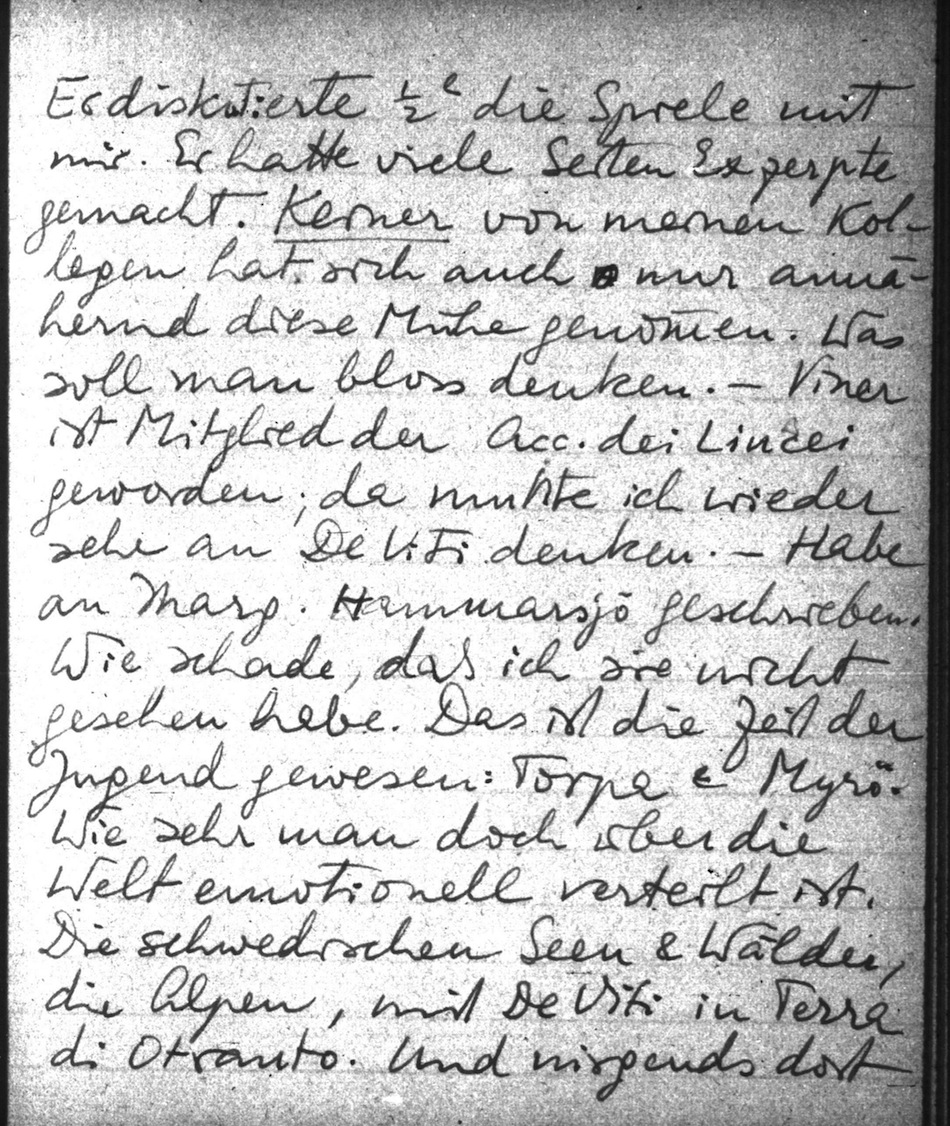 Er diskutierte ½ʰ die Spiele mit
mir. Er hatte viele Seiten Exzerpte
gemacht. Keiner von meinen Kol-
legen hat sich auch nur annä-
hernd diese Mühe genom̄en. Was
soll man bloss denken. – Viner
ist Mitglied der Acc. dei Lincei
geworden; da mußte ich wieder
sehr an De Viti denken. – Habe
an Marg. Hammarsjö geschrieben.
Wie schade, daß ich sie nicht
gesehen habe. Das ist die Zeit der
Jugend gewesen: Torpa & Myrö.
Wie sehr man doch über die
Welt emotionell verteilt ist.
Die schwedischen Seen & Wälder,
die Alpen, mit De Viti in Terra
di Otranto. Und nirgends dort